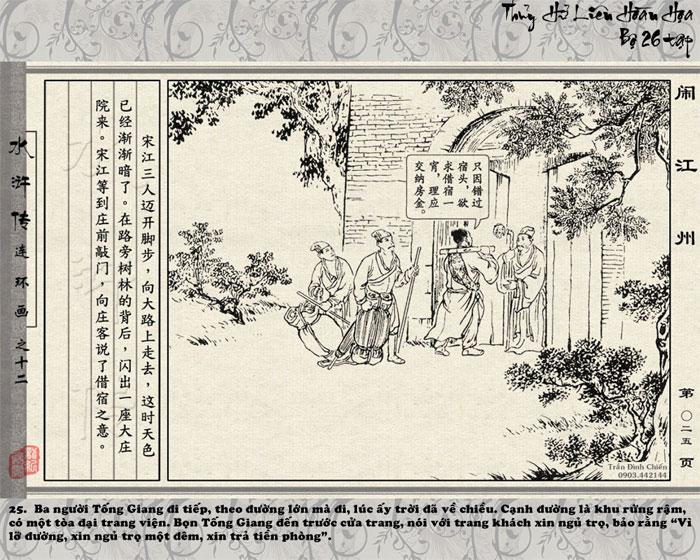 Thủy Hử Liên Hoàn Họa
Bộ 26 tập
闹江州
第〇二五页
水浒传连环画之十二
宋江三人迈开脚步，向大路上走去，这时天色
已经渐渐暗了。在路旁树林的背后，闪出一座大庄
院来。宋江等到庄前敲门，向庄客说了借宿之意。
只因错过
宿头，欲
求借宿一
宵，理应
交纳房金。
Trần Đình Chiến
0903.442144
25. Ba người Tống Giang đi tiếp, theo đường lớn mà đi, lúc ấy trời đã về chiều. Cạnh đường là khu rừng rậm,
có một tòa đại trang viện. Bọn Tống Giang đến trước cửa trang, nói với trang khách xin ngủ trọ, bảo rằng “Vì
lỡ đường, xin ngủ trọ một đêm, xin trả tiền phòng”.